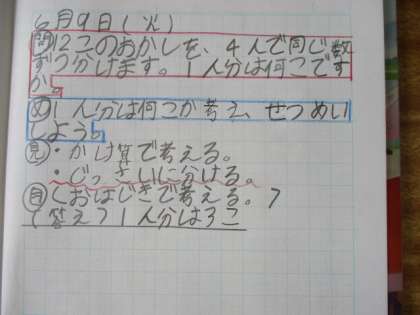 6月9日(火)
問12このおかしを、4人で同じ数
ずつ分けます。1人分は何こです
か。
め1人分は何こか考え、せつめい
しよう。
見・かけ算で考える。
・じっさいに分ける。
自<おはじきで考える。>
(答え)1人分は3こ